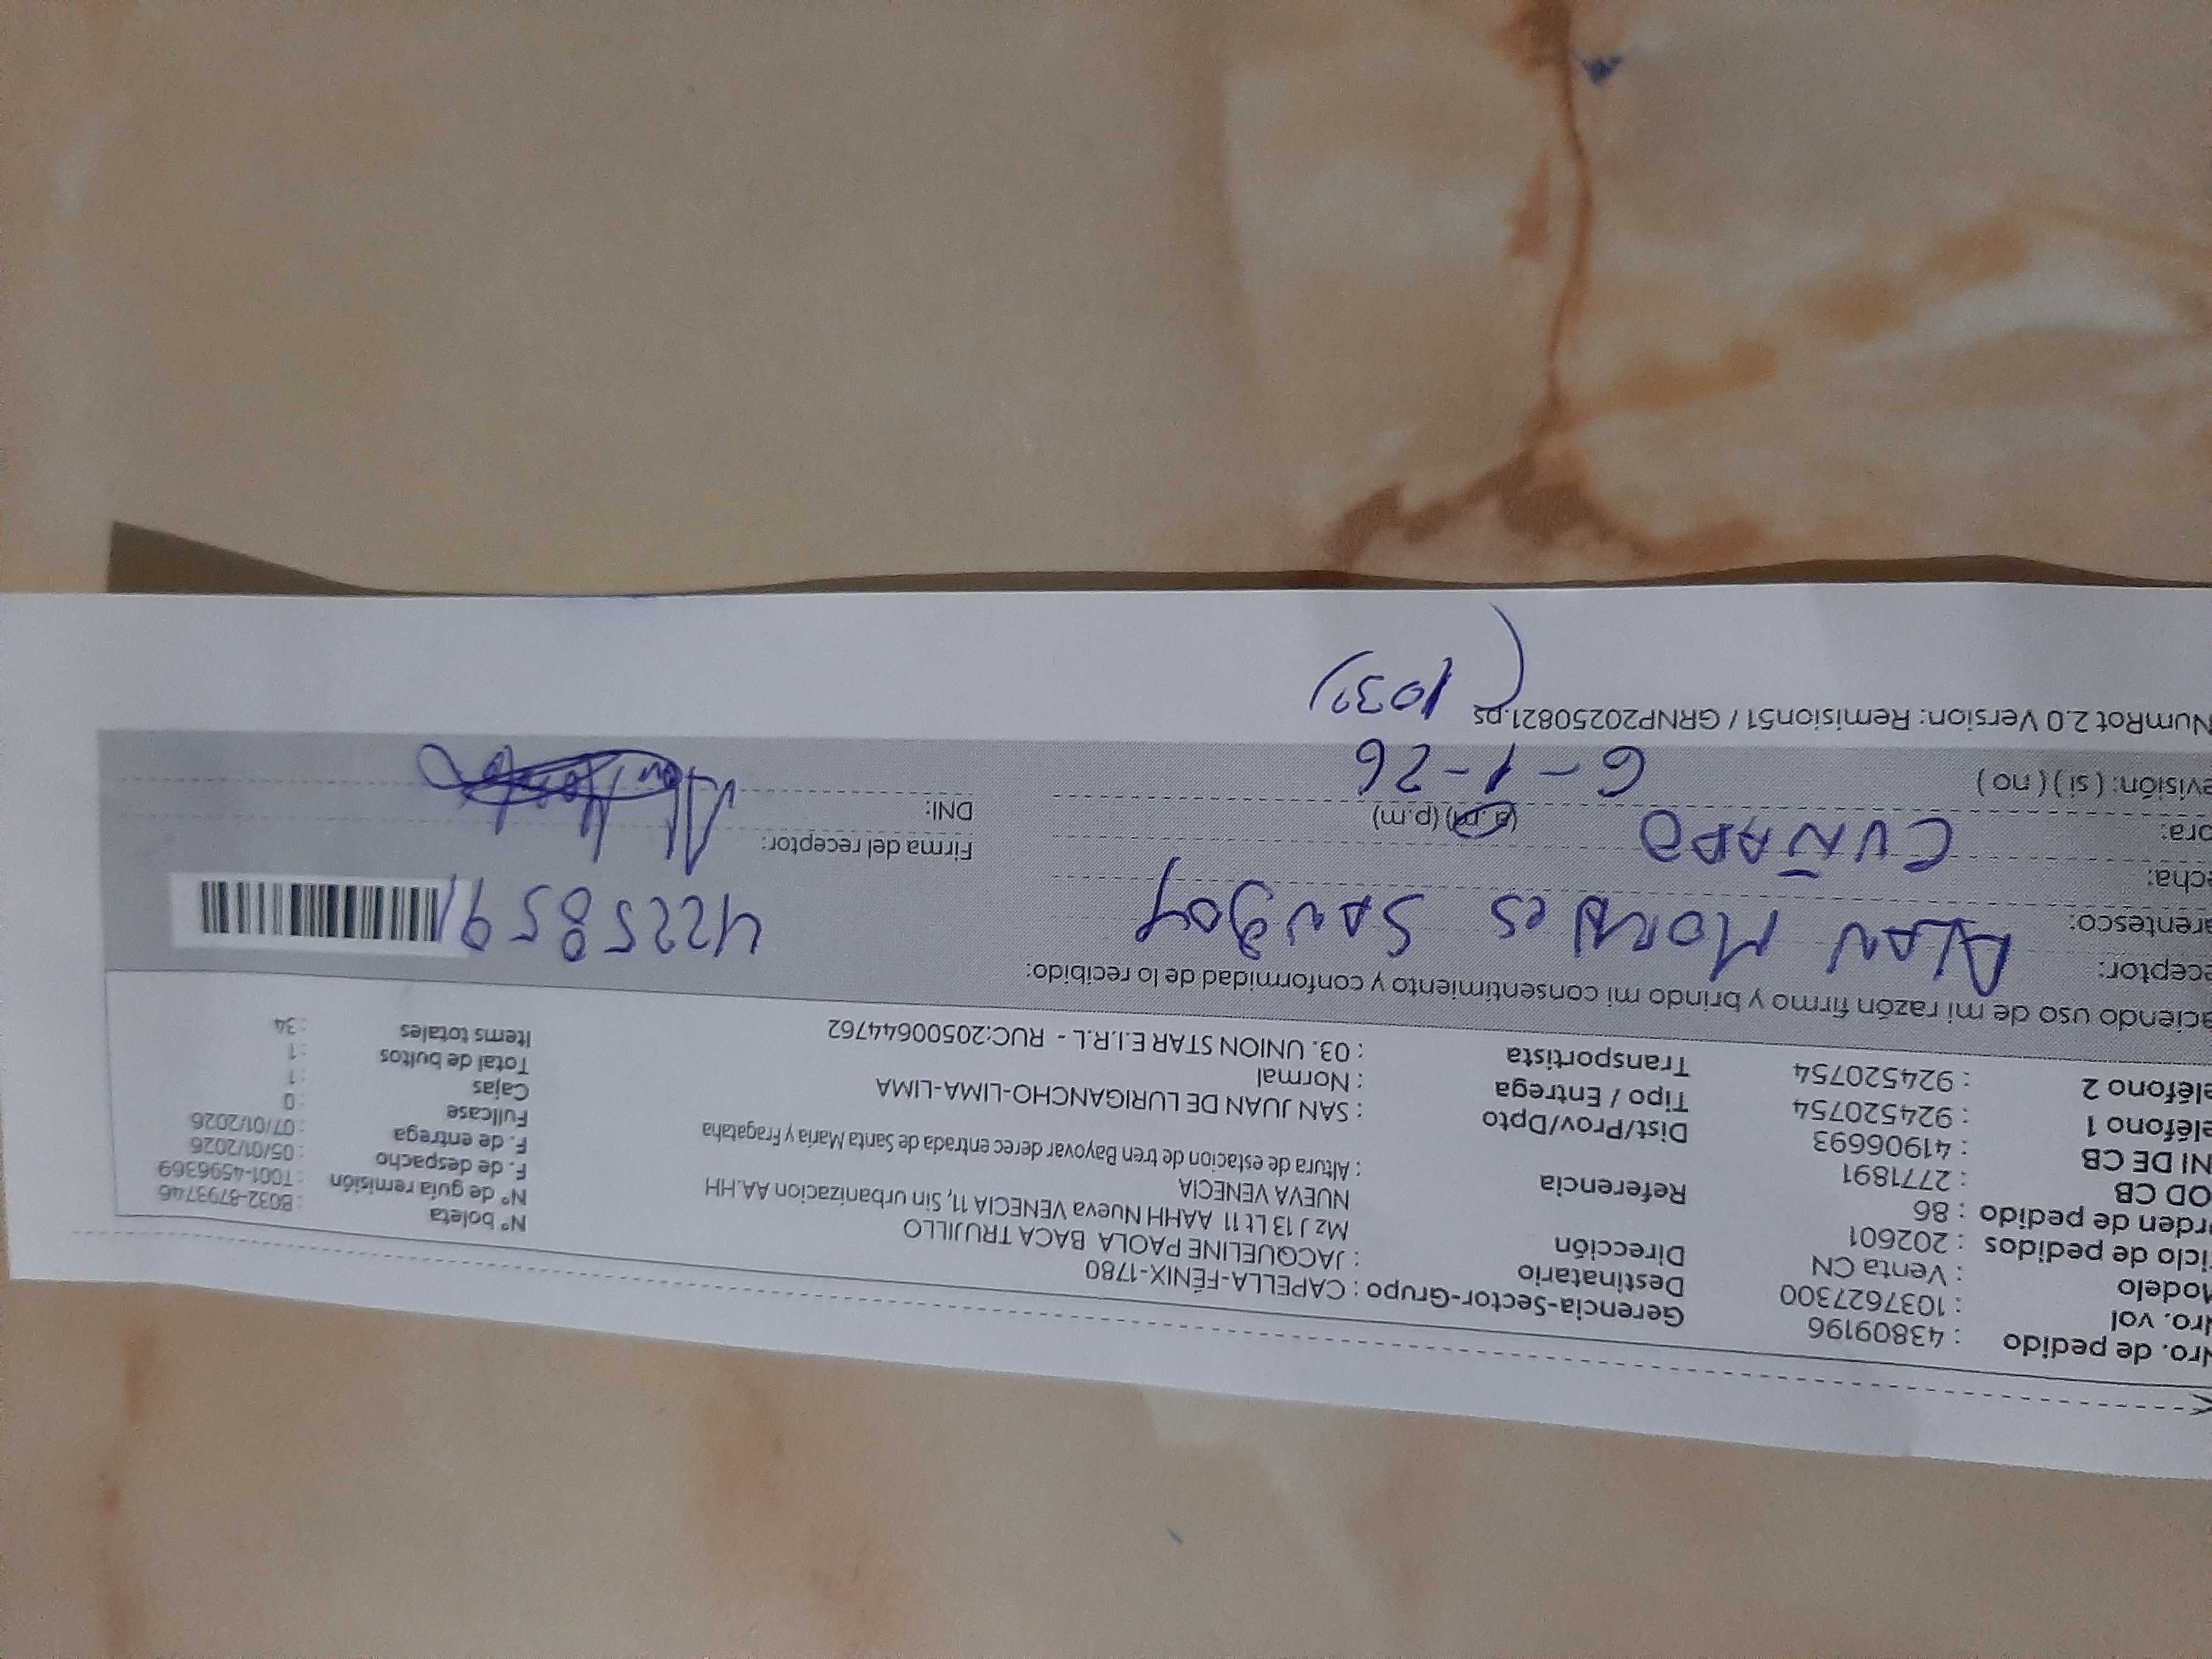 Nro. de pedido : 43809196 Gerencia-Sector-Grupo : CAPELLA-FÉNIX-1780
Nro. vol : 1037627300 Destinatario : JACQUELINE PAOLA BACA TRUJILLO
Modelo : Venta CN Dirección Mz J 13 Lt 11 AAHH Nueva VENECIA 11, Sin urbanización AA.HH
iclo de pedidos : 202601 NUEVA VENECIA
rden de pedido : 86 Referencia : Altura de estacion de tren Bayovar derec entrada de Santa María y Fragataha
OD CB : 2771891 Dist/Prov/Dpto : SAN JUAN DE LURIGANCHO-LIMA-LIMA
NI DE CB : 41906693 Tipo / Entrega : Normal
eléfono 1 : 924520754 Transportista : 03. UNION STAR E.I.R.L - RUC:20500644762
eléfono 2 : 924520754
N° boleta : B032-8793746
N° de guía remisión : T001-4596369
F. de despacho : 05/01/2026
F. de entrega : 07/01/2026
Fullcase : 0
Cajas : 1
Total de bultos : 1
Items totales : 34
aciendo uso de mi razón firmo y brindo mi consentimiento y conformidad de lo recibido:
eceptor: ALAN MORALES 42258591
arentesco:
echa: CUÑADO Firma del receptor:
ora: (a.m) (p.m) DNI:
evisión: ( si ) ( no ) 6-1-26
NumRot 2.0 Version: Remision51 / GRNP20250821.ps